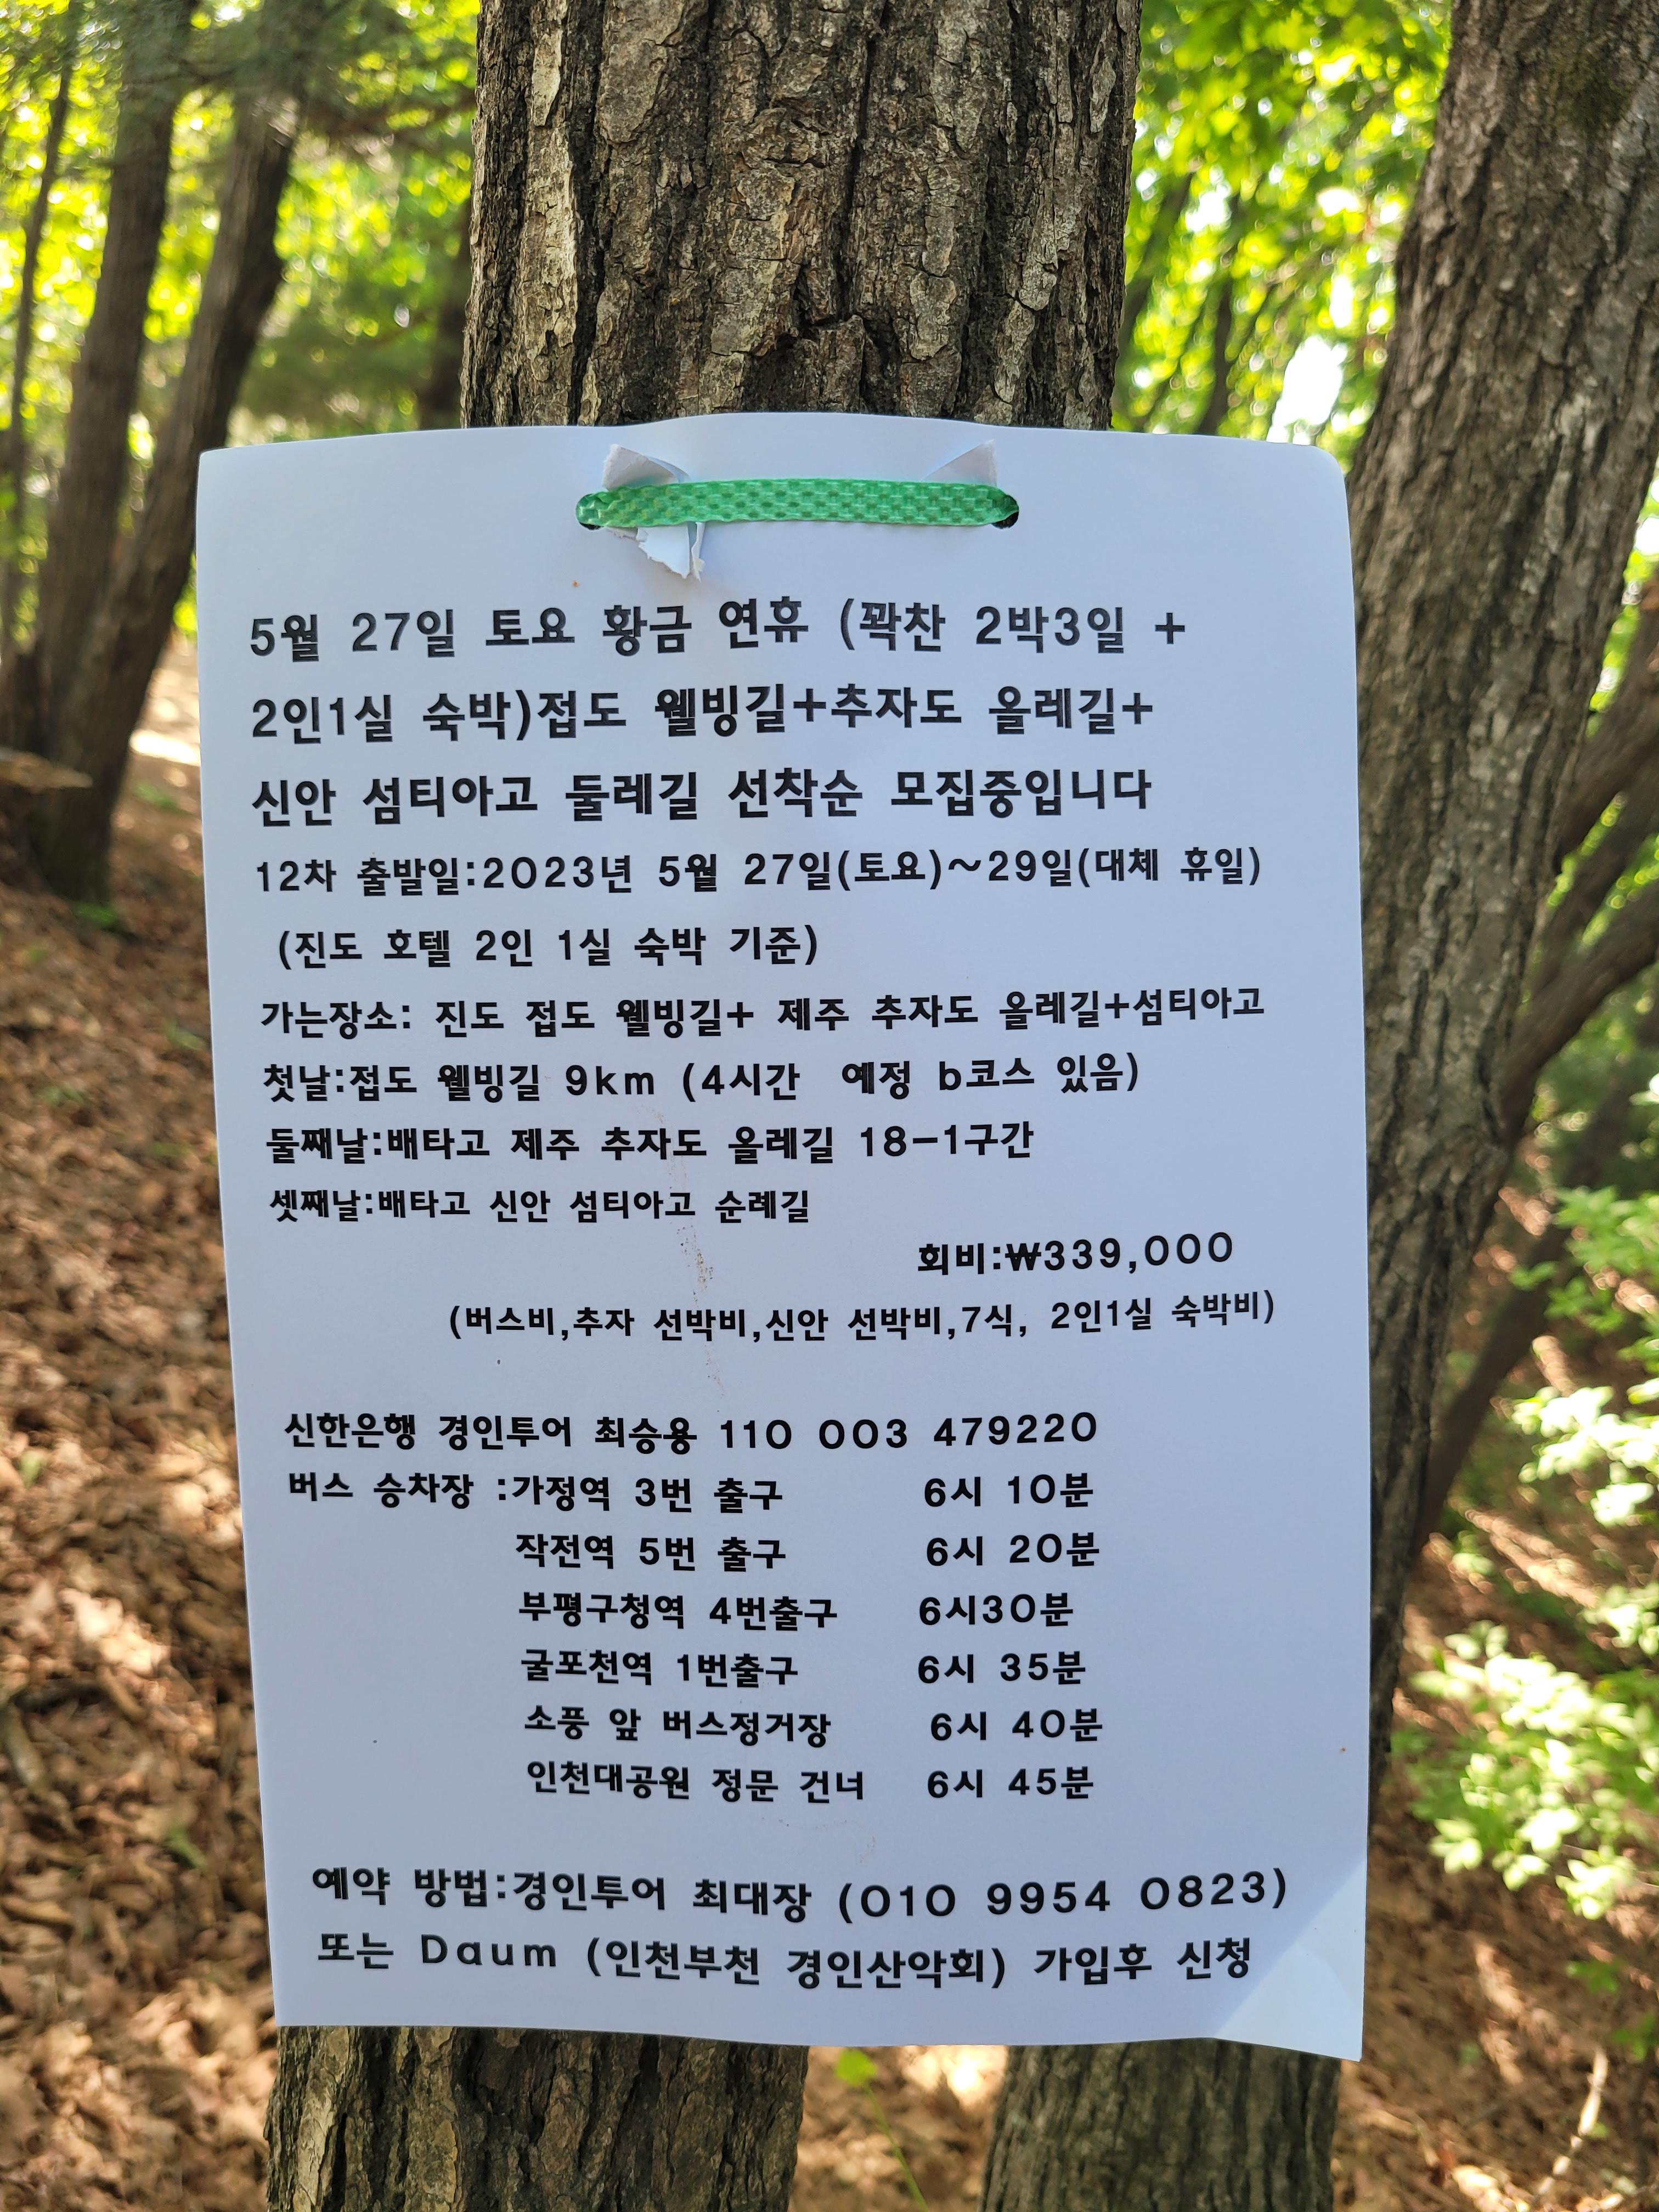 5월 27일 토요 황금 연휴 (꽉찬 2박3일 +
2인1실 숙박)접도 웰빙길+추자도 올레길+
신안 섬티아고 둘레길 선착순 모집중입니다
12차 출발일:2023년 5월 27일(토요)~29일(대체 휴일)
(진도 호텔 2인 1실 숙박 기준)
가는장소: 진도 접도 웰빙길+ 제주 추자도 올레길+섬티아고
첫날:접도 웰빙길 9km (4시간 예정 b코스 있음)
둘째날:배타고 제주 추자도 올레길 18-1구간
셋째날:배타고 신안 섬티아고 순례길
회비:₩339,000
(버스비,추자 선박비,신안 선박비,7식, 2인1실 숙박비)
신한은행 경인투어 최승용 110 003 479220
버스 승차장 :가정역 3번 출구 6시 10분
작전역 5번 출구 6시 20분
부평구청역 4번출구 6시30분
굴포천역 1번출구 6시 35분
소풍 앞 버스정거장 6시 40분
인천대공원 정문 건너 6시 45분
예약 방법:경인투어 최대장 (010 9954 0823)
또는 Daum (인천부천 경인산악회) 가입후 신청